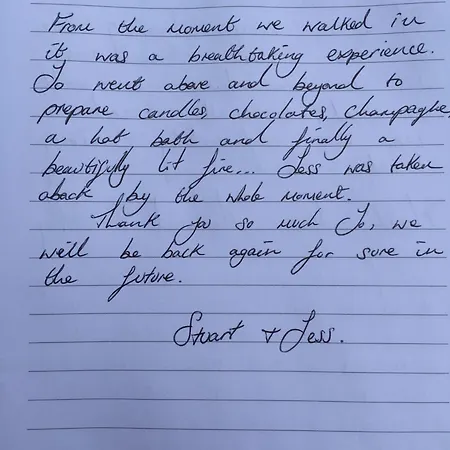 From the moment we walked in
it was a breathtaking experience.
Jo went above and beyond to
prepare candles, chocolates, champagne,
a hot bath and finally a
beautifully lit fire... Jess was taken
aback by the whole moment.
Thank you so much Jo, we
we'll be back again for sure in
the future.
Stuart + Jess.